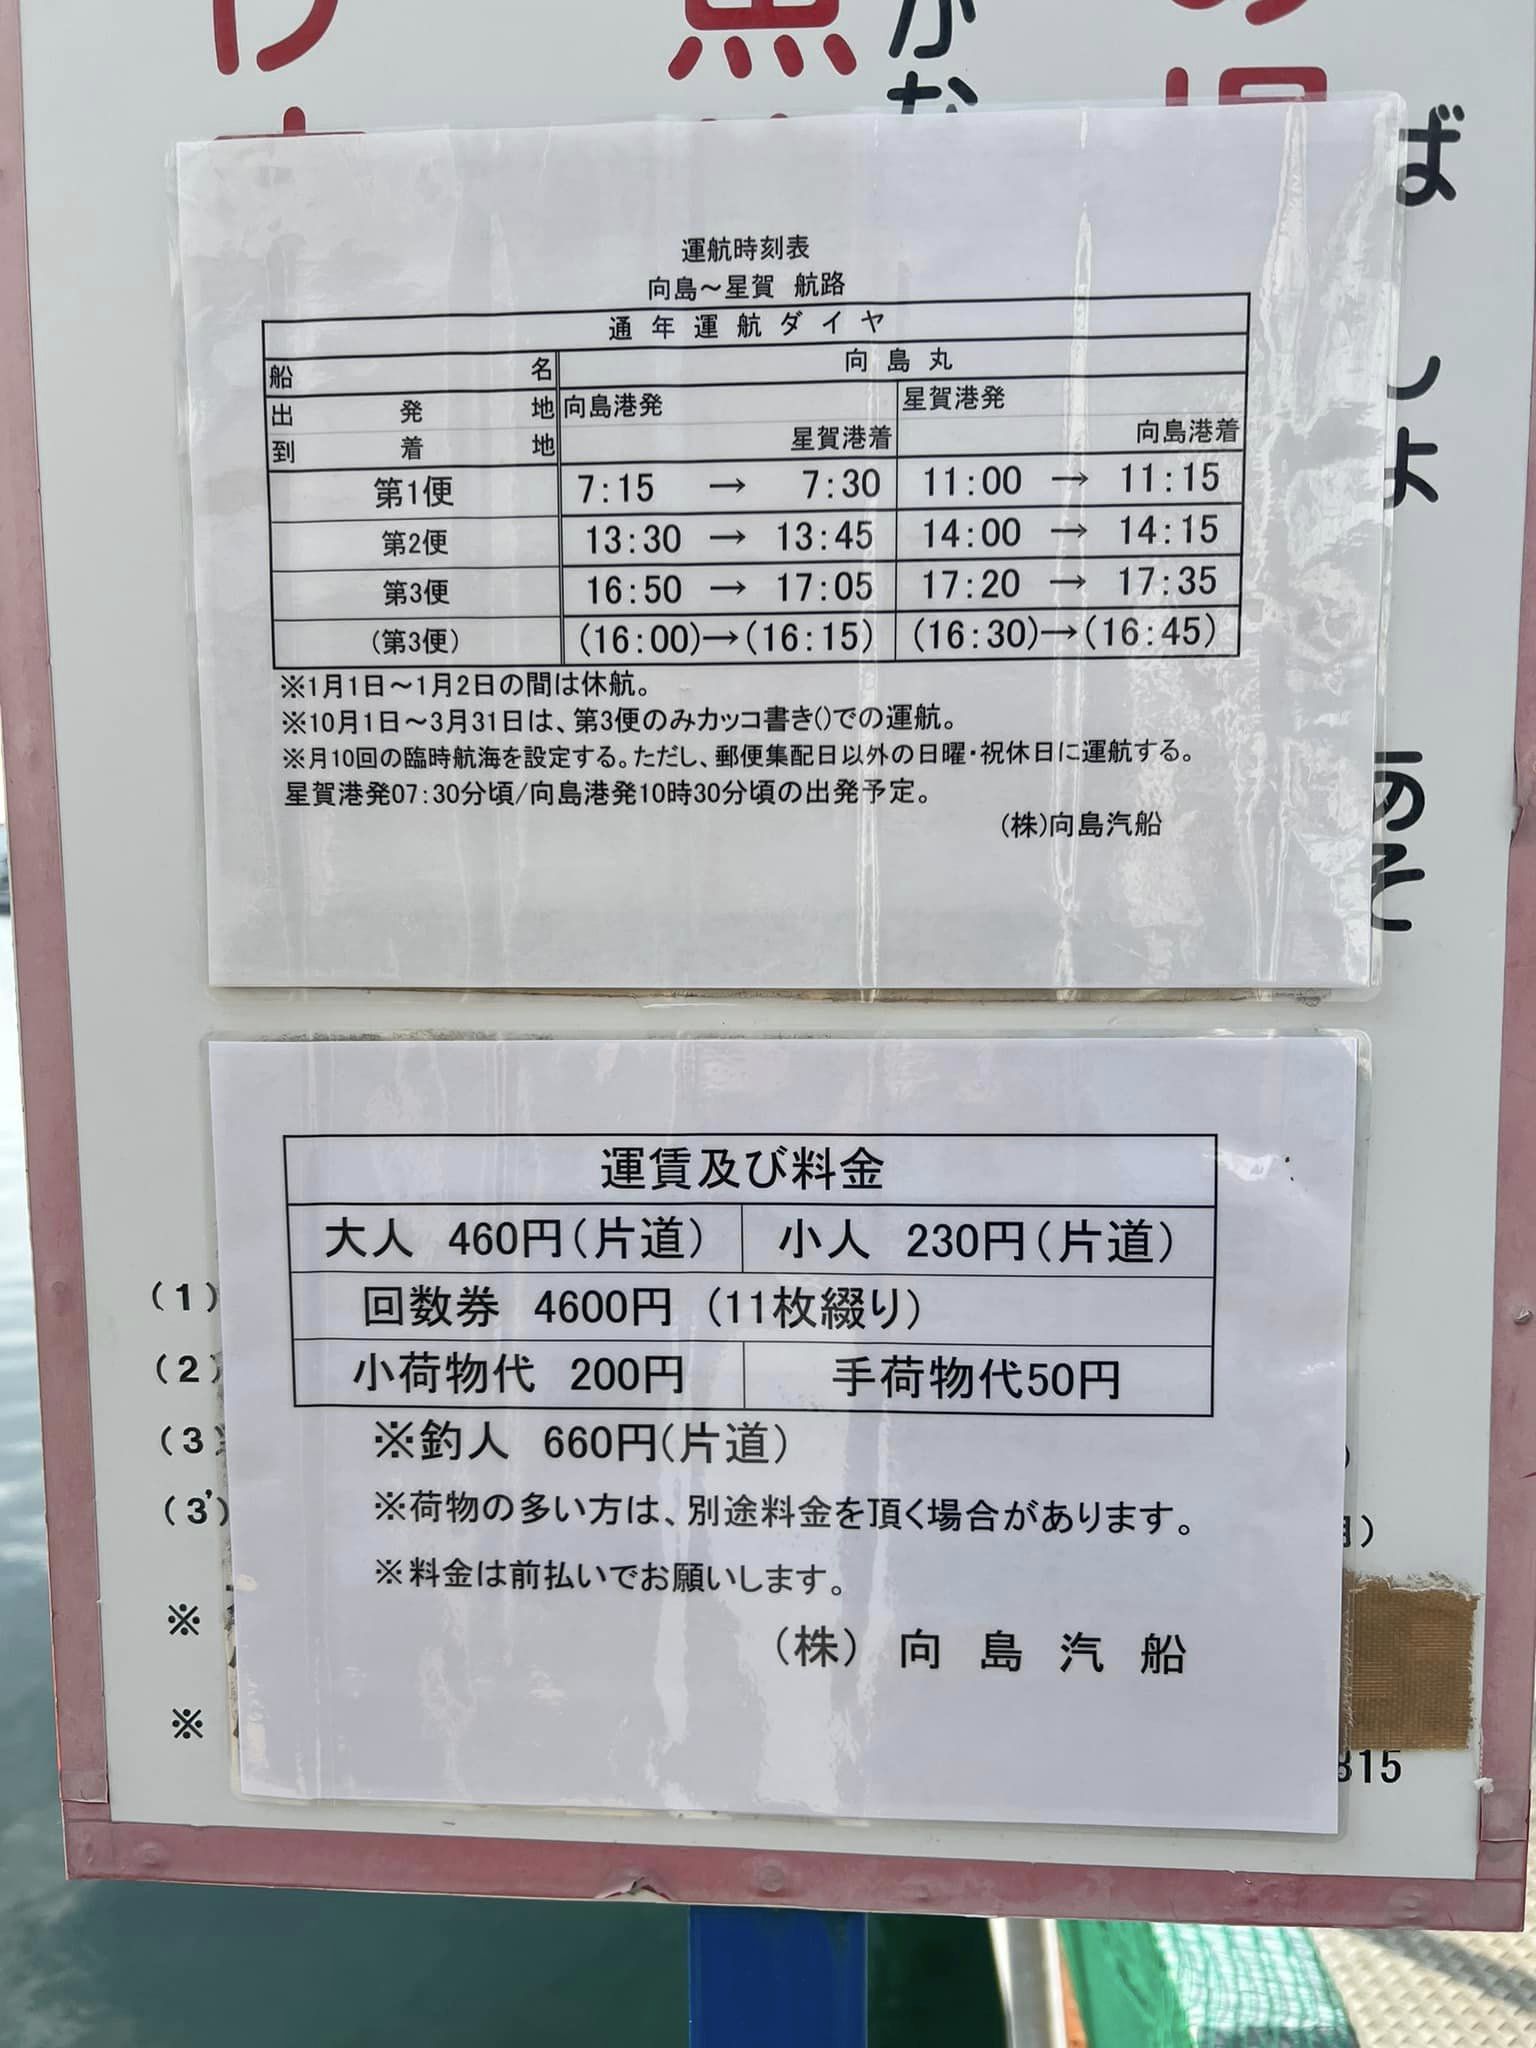 け
魚
かな
の
ば
しよ
あそ
運航時刻表
向島～星賀 航路
通年運航ダイヤ
船名 向島丸
出発地 向島港発 星賀港発
到着地 星賀港着 向島港着
第1便 7:15 → 7:30 11:00 → 11:15
第2便 13:30 → 13:45 14:00 → 14:15
第3便 16:50 → 17:05 17:20 → 17:35
(第3便) (16:00)→(16:15) (16:30)→(16:45)
※1月1日～1月2日の間は休航。
※10月1日～3月31日は、第3便のみカッコ書き()での運航。
※月10回の臨時航海を設定する。ただし、郵便集配日以外の日曜・祝休日に運航する。
星賀港発07:30分頃/向島港発10時30分頃の出発予定。
(株)向島汽船
運賃及び料金
大人 460円(片道) 小人 230円(片道)
回数券 4600円 (11枚綴り)
小荷物代 200円 手荷物代50円
※釣人 660円(片道)
※荷物の多い方は、別途料金を頂く場合があります。
※料金は前払いでお願いします。
(株) 向島汽船
(1)
(2)
(3)
(3')
月)
※
※
315